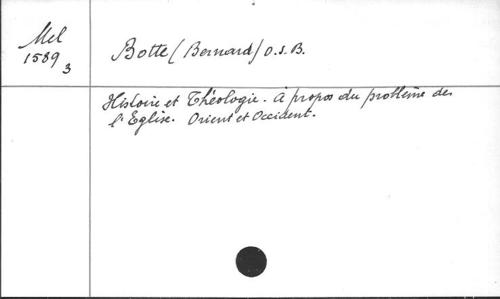 Mel
1589
3
Botte (Bernard) O.S.B.
Histoire et Théologie. A propos du problème de
l'Eglise. Orient et Occident.